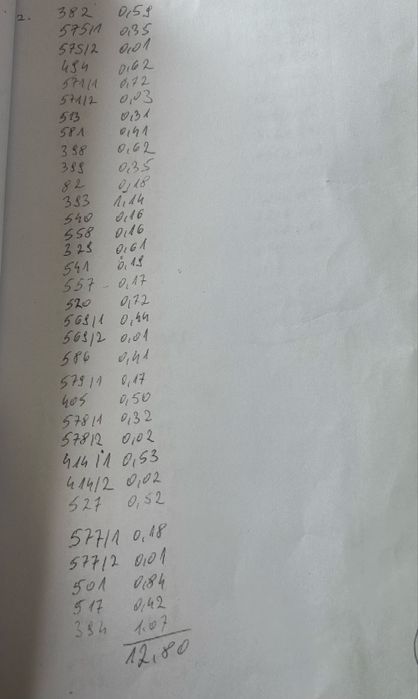 2. 382 0,59
575/1 0,35
575/2 0,01
494 0,62
571/1 0,72
571/2 0,03
513 0,31
581 0,41
398 0,62
399 0,35
82 0,18
393 1,14
540 0,16
558 0,16
329 0,61
541 0,19
557 0,17
520 0,72
569/1 0,44
569/2 0,01
586 0,41
579/1 0,17
405 0,50
578/1 0,32
578/2 0,02
414/1 0,53
414/2 0,02
527 0,52
577/1 0,18
577/2 0,01
501 0,84
517 0,42
394 1,07
12,80